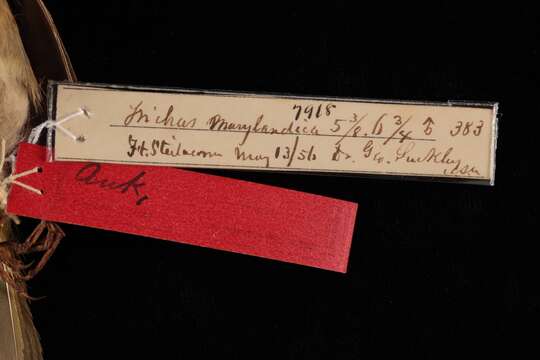 7918
Trichas Marylandica 5 3/8. 6 3/4 ♂ 383
Ft. Steilacoom May 13/56 Dr. Geo. Suckley, USA
Auk,